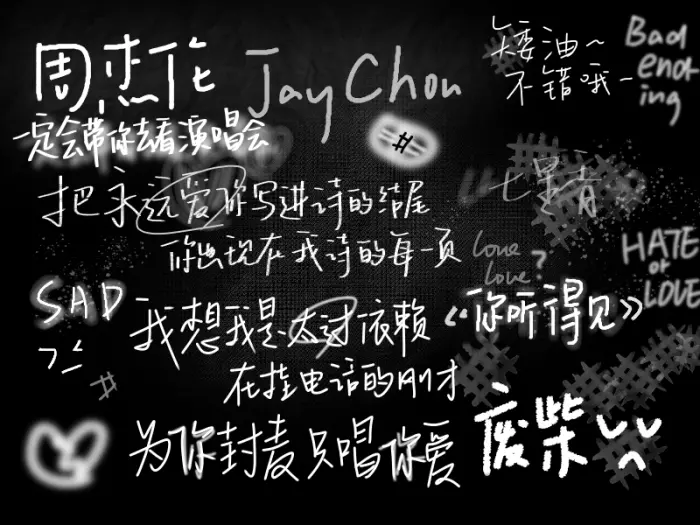 周杰伦 Jay Chou
矮油~
不错哦~
Bad
end
ing
一定会带你去看演唱会
把永远爱你写进诗的结尾
七里香
你出现在我诗的每一页
love
love?
HATE
or
LOVE
SAD
我想我是太过依赖
《你听得见》
在挂电话的刚才
为你封麦只唱你爱
废柴